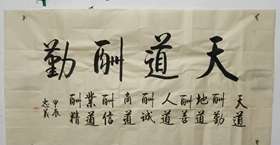 天道酬勤
天道
酬勤
地道
酬善
人道
酬誠
商道
酬信
業道
酬精
甲辰